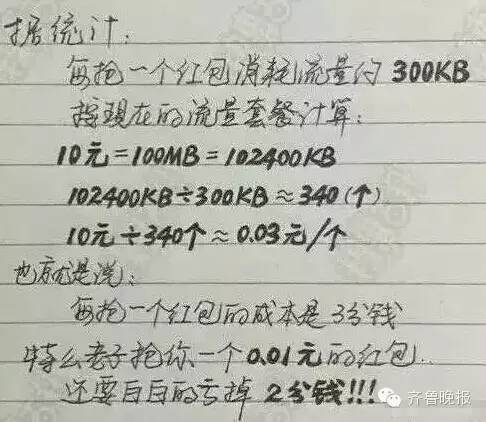 据统计:
每抢一个红包消耗流量约 300KB
按现在的流量套餐计算:
10元=100MB=102400KB
102400KB÷300KB≈340(个)
10元÷340个≈0.03元/个
也就是说:
每抢一个红包的成本是3分钱
特么老子抢你一个0.01元的红包..
还要白白的亏掉 2分钱!!!
齐鲁晚报